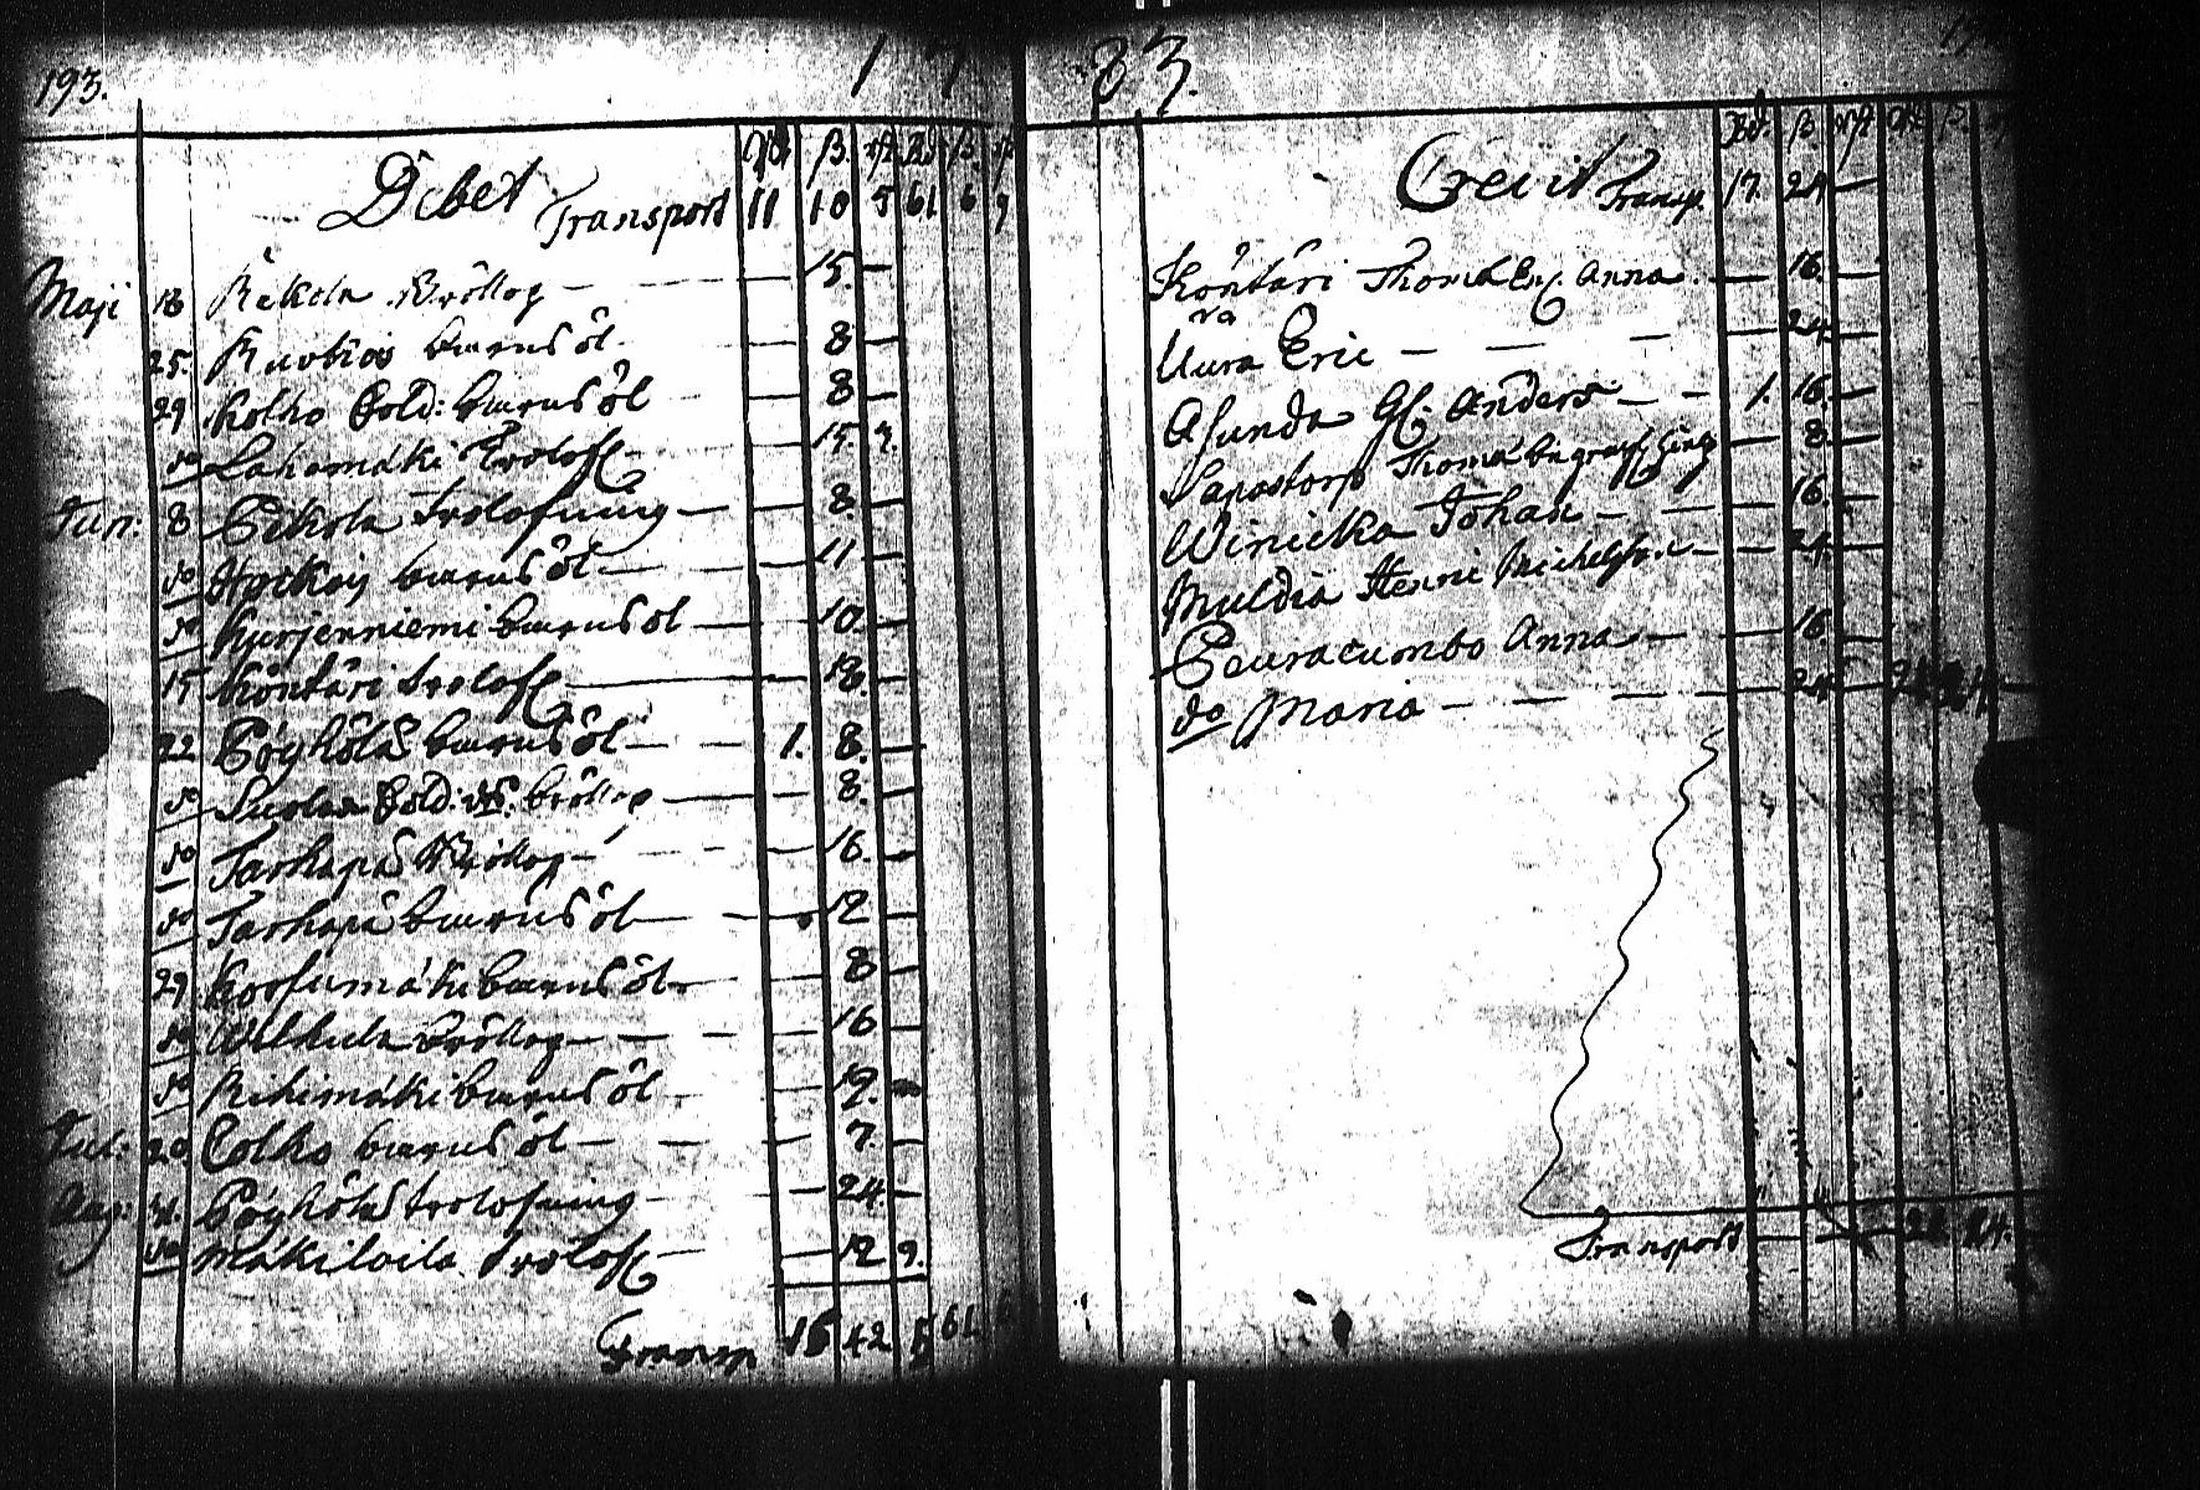 193.
17
83.
Debet Transport 11 10 5 61 6 9
Maji 18 Rekola Bröllop — 15. —
25. Ruokio barns öl — 8 —
29 Kolho Sold: barns öl — 8 —
do Lahomäki Trolofn — 15. 3.
Jun: 8 Eskola Trolofning — 8. —
do Heikois barns öl — 11 —
do Kurjenniemi barns öl — 10. —
15 Köntäri trolofn — 18. —
22 Pöyhölä barns öl — 1. 8. —
do Suolax Sold: bröllop — 8. —
do Tarhapä Bröllop — 16. —
do Tarhapä barns öl — 12 —
29 Korsumäki barns öl — 8 —
do Wilkula Bröllop — 16 —
do Rihimäki barns öl — 12. —
Jul: 20 Colho barns öl — 7. —
Aug: 31. Pöyhölä trolofning — 24. —
do Mäkiloila trolofn — 12 9.
Transp 15 42 5 61
Credit Transp. 17. 24 —
Köntäri Thomas Enk. Anna. — 16. —
va
Uura Eric — 24. —
Asunda Gl. Anders — 1. 16. —
Sapostorp Thomas — 8. —
Winicka Johan — 16. —
Muldia Henric Michelss. — 24. —
Peuracumbo Anna — 16. —
do Maria — 24 —
Transport — 22 24.